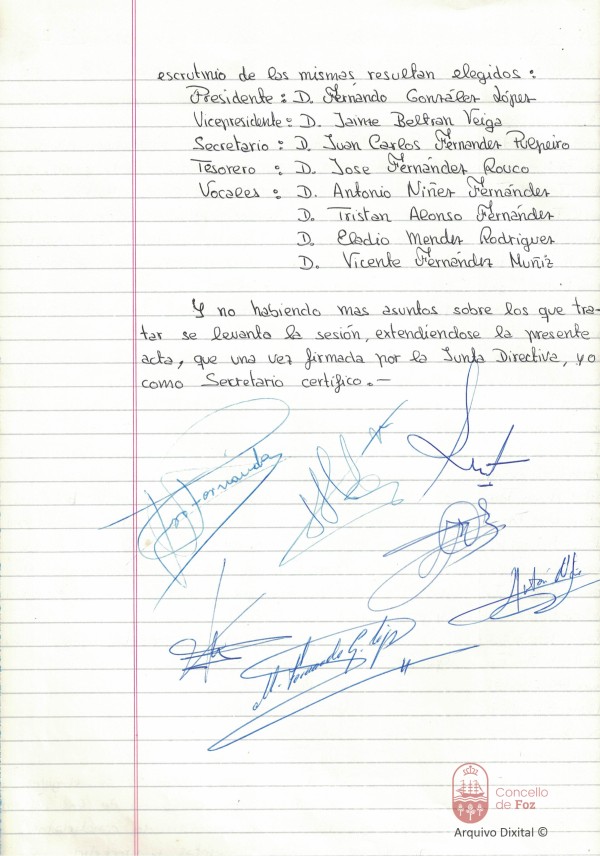 escrutinio de las mismas resultan elegidos:
Presidente: D. Fernando González López
Vicepresidente: D. Jaime Beltran Veiga
Secretario: D. Juan Carlos Fernandez Pulpeiro
Tesorero: D. Jose Fernández Rouco
Vocales: D. Antonio Niñez Fernández
D. Tristan Alonso Fernández
D. Eladio Mendez Rodriguez
D. Vicente Fernández Muñiz
Y no habiendo mas asuntos sobre los que tra-
tar se levanto la sesión, extendiéndose la presente
acta, que una vez firmada por la Junta Directiva, yo
como Secretario certifico.—
Fernández
M. Fernando G. López
Concello
de Foz
Arquivo Dixital ©